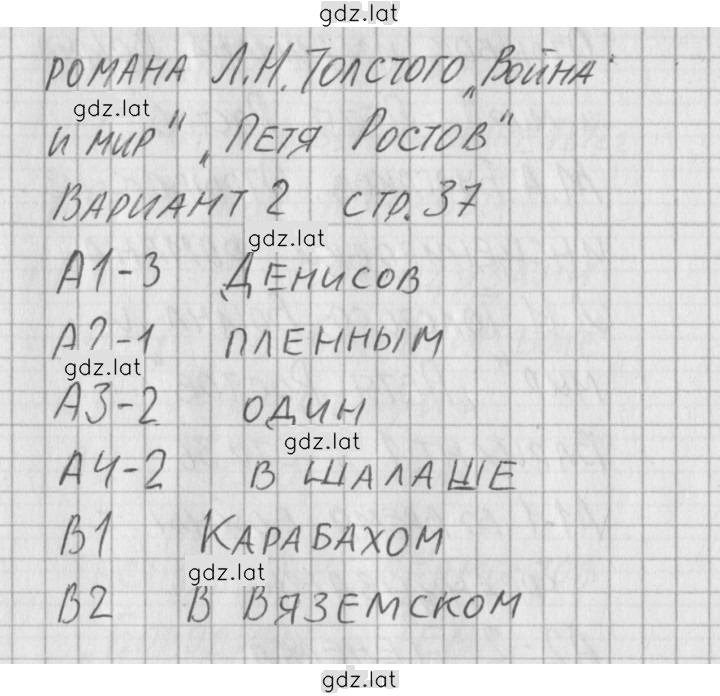 gdz.lat
РОМАНА Л.Н. ТОЛСТОГО „ВОЙНА
gdz.lat
И МИР" „ПЕТЯ РОСТОВ"
ВАРИАНТ 2 СТР. 37
gdz.lat
А1-3 ДЕНИСОВ
А2-1 ПЛЕННЫМ
gdz.lat
А3-2 ОДИН
gdz.lat
А4-2 В ШАЛАШЕ
В1 КАРАБАХОМ
gdz.lat
В2 В ВЯЗЕМСКОМ
gdz.lat